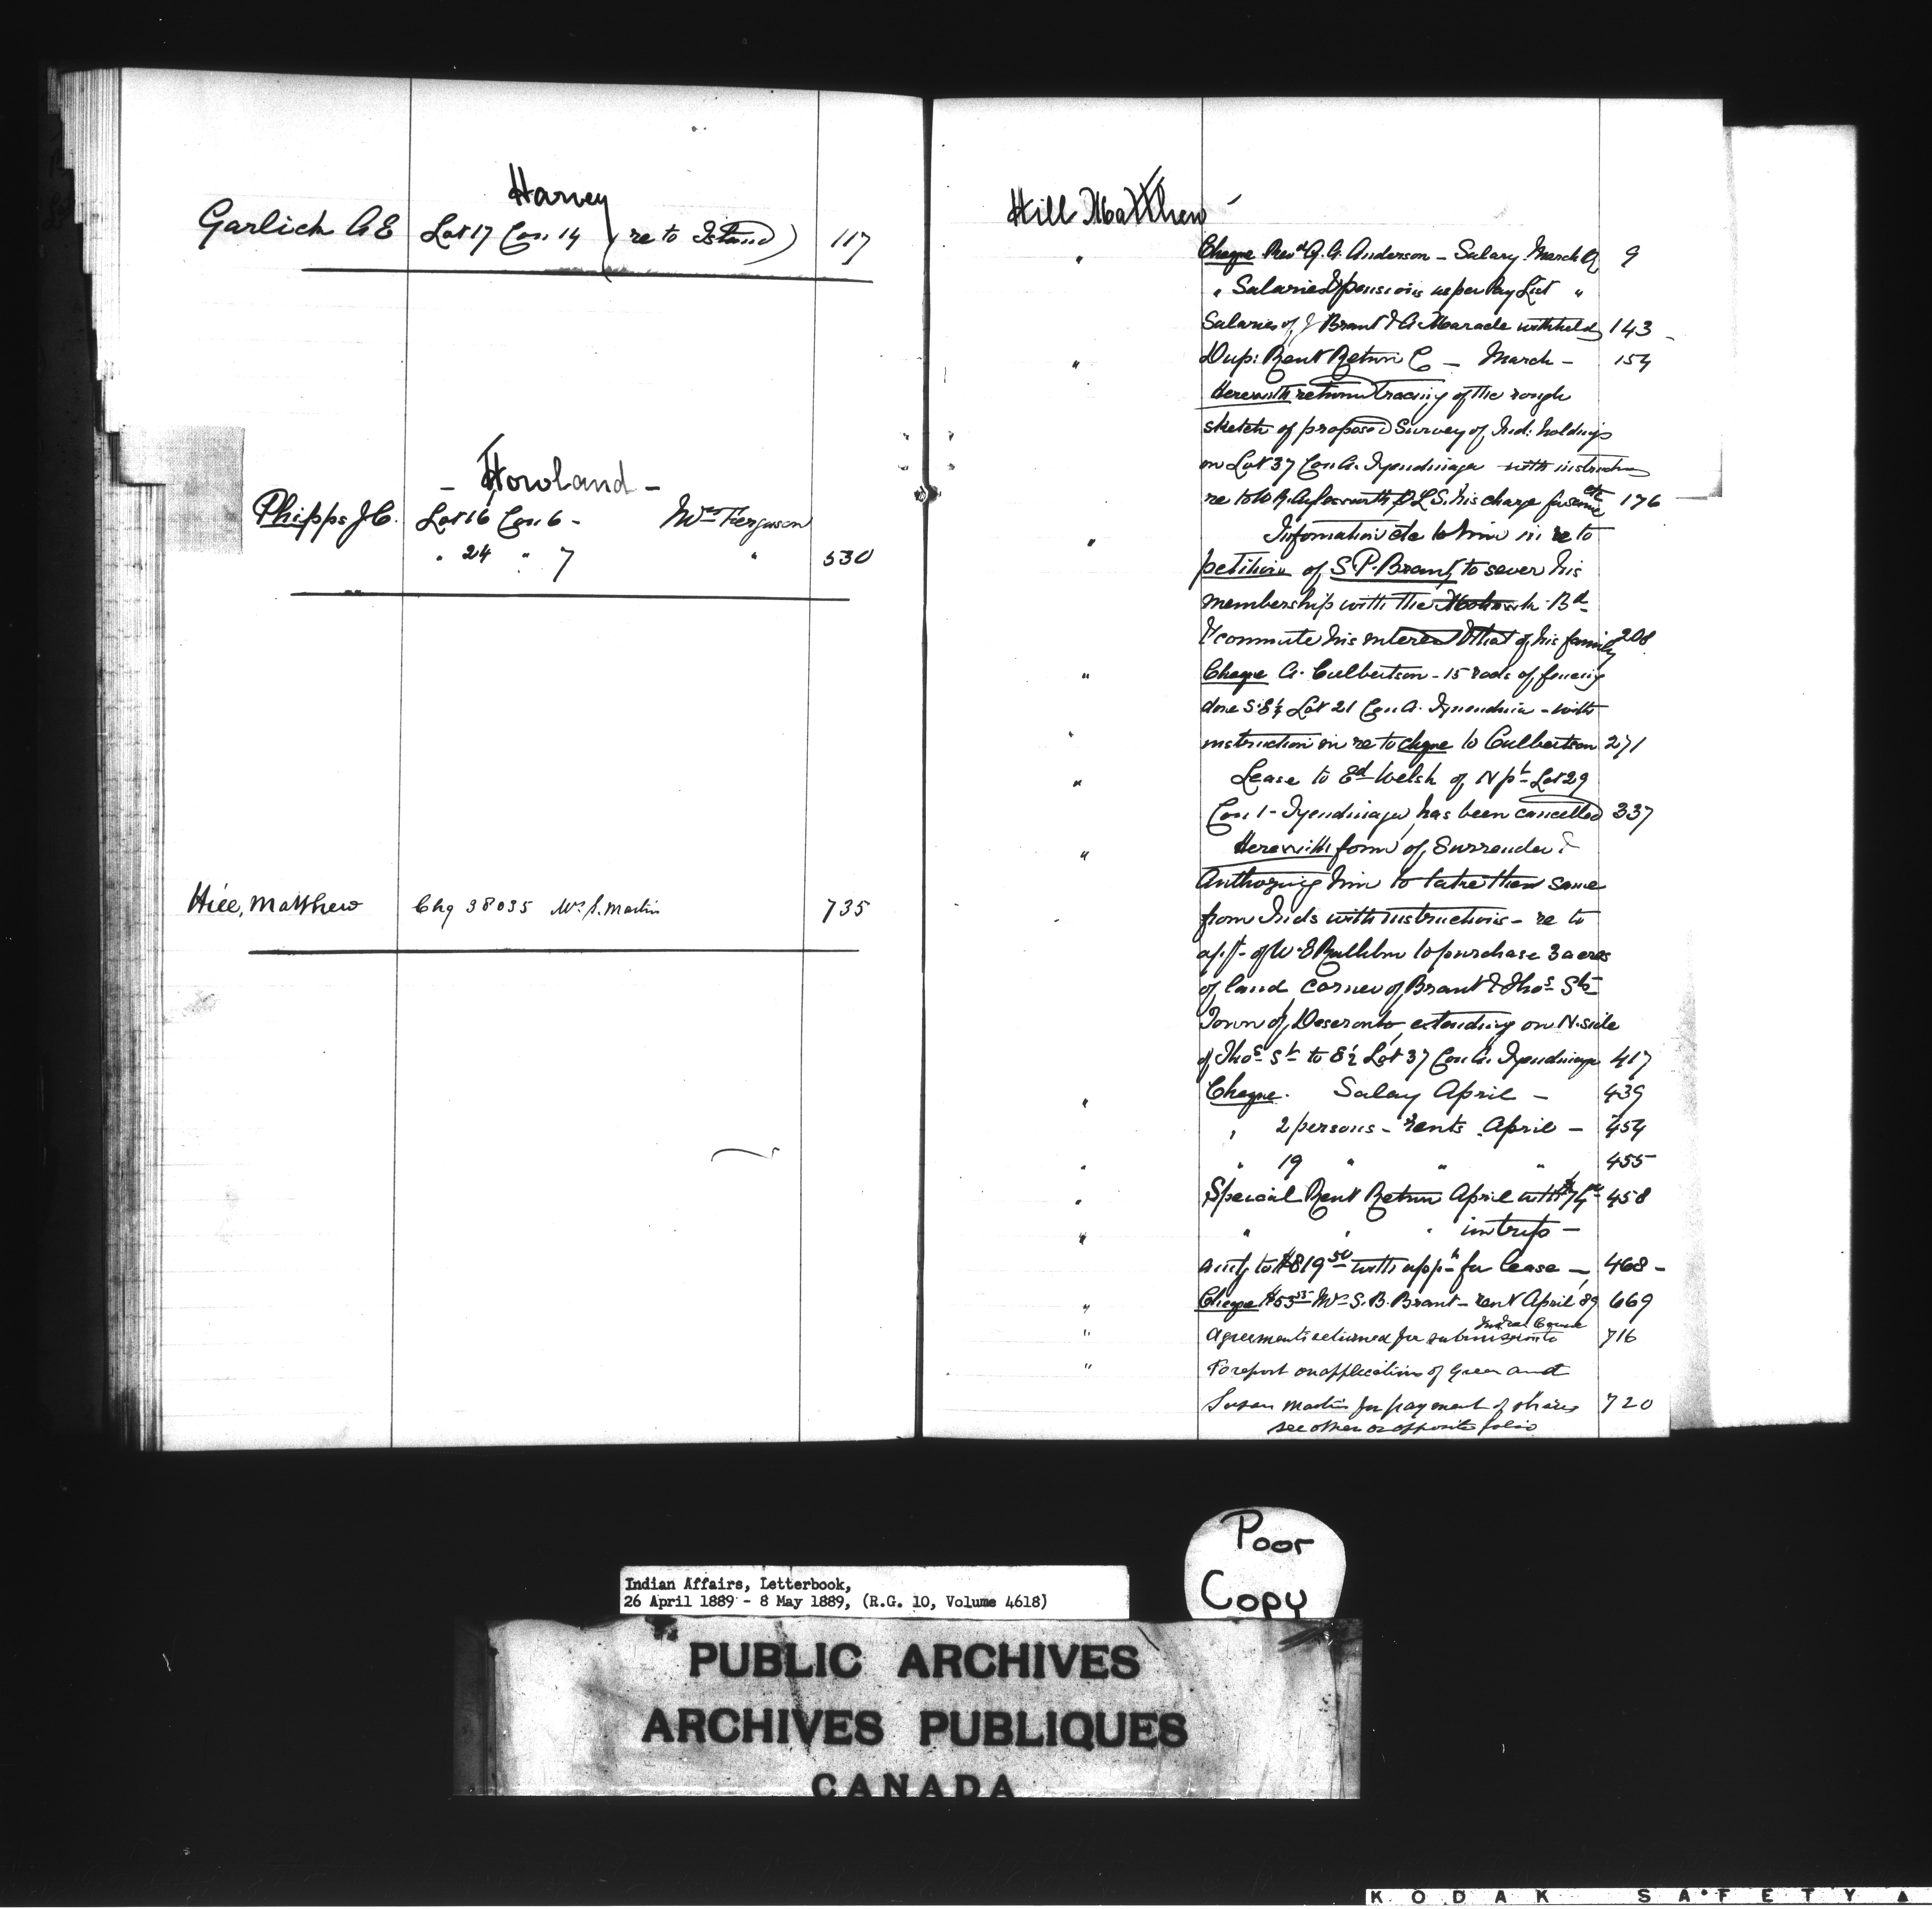 Harvey
Garlick A E Lot 17 Con 14 (re to Island) 117
- Howland -
Phipps J C. Lot 16 Con 6 - Mrs Ferguson
" 24 " 7 " 530
Hill, Matthew Chq 38035 Mrs S. Martin 735
Hill Matthew
" Cheque Revd G. A. Anderson - Salary March Q 9
" Salaries & pensions as per Pay List "
Salaries of J Brant & A. Maracle withheld 143 -
" Dup: Rent Return C - March - 154
Herewith return tracing of the rough
sketch of proposed Survey of Ind: holdings
on Lot 37 Con A. Tyendinaga with instructions
re to W. R. Aylesworth P L S. his charge for same etc 176
" Information etc to him in re to
petition of S P. Brant to sever his
membership with the Mohawk Bd
& commute his interest & that of his family 208
" Cheque A. Culbertson - 15 rods of fencing
done S. E ¼ Lot 21 Con A. - with
" instruction in re to chque to Culbertson 271
" Lease to Ed Welsh of N pt Lot 29
Con 1 - Tyendinaga, has been cancelled 337
" Herewith form of Surrender &
Authorizing him to take same
from Inds with instructions - re to
appn of W. E to purchase 3 acres
of land corner of Brant & Thos Sts
Town of Deseronto, extending on N. side
of Thos St to E ½ Lot 37 Con A. Tyendinaga 417
" Cheque. Salary April - 439
" 2 persons - rents April - 454
" " 19 " " " 455
" Special Rent Return April with 458
" " " " in trip -
amtg to $819 50 with appn for lease - 468 -
" Cheque $53 35 Mrs S. B. Brant - rent April 89 669
" Agreements returned for submission to Indian Council 716
" To report on application of Green and
Susan Martin for payment of shares 720
see other or opposite folio
Poor
Copy
Indian Affairs, Letterbook,
26 April 1889 - 8 May 1889, (R.G. 10, Volume 4618)
PUBLIC ARCHIVES
ARCHIVES PUBLIQUES
CANADA
KODAK SAFETY